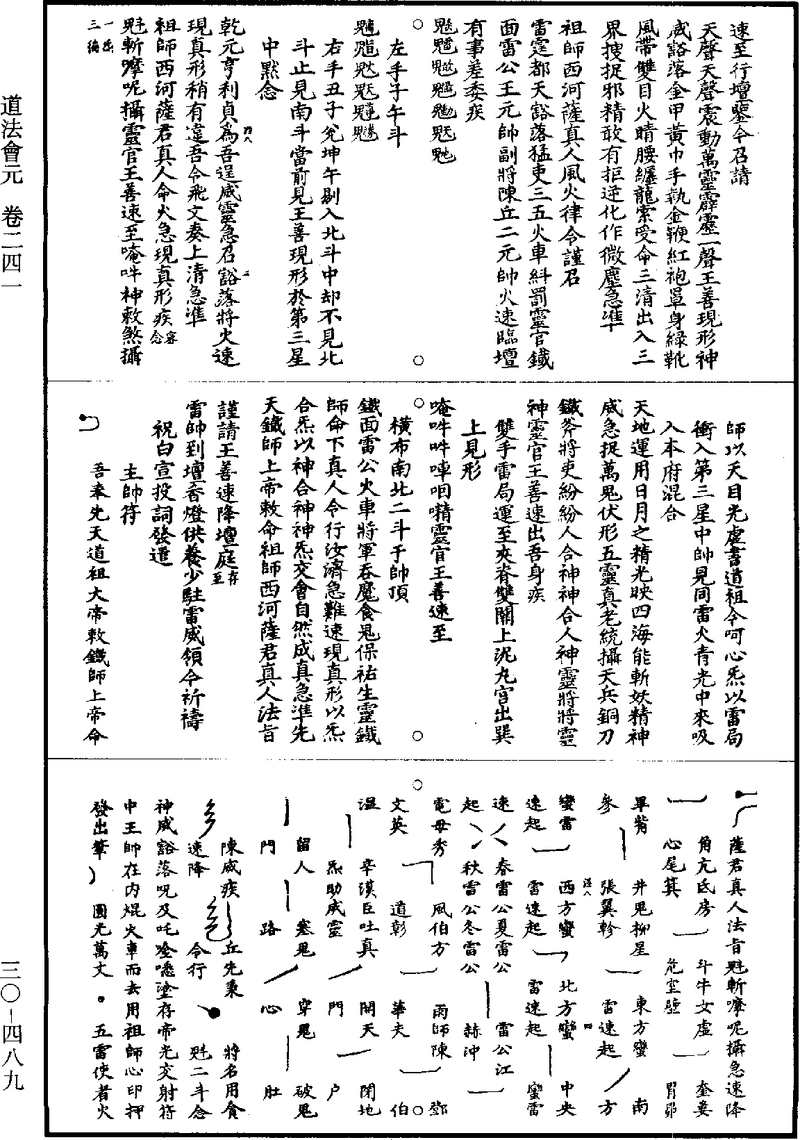 道法會元　卷二四一
三〇—四八九
速至行壇鑒今召請
天聲天聲震動萬靈霹靂一聲王善現形神
威豁落金甲黃巾手執金鞭紅袍罩身綠靴
風帶雙目火睛腰纏龍索受命三清出入三
界搜捉邪精敢有拒逆化作微塵急準
祖師西河薩真人風火律令謹召
雷霆都天豁落猛吏三五火車糾罰靈官鐵
面雷公王元帥副將陳丘二元帥火速臨壇
有事差委疾
左手子午斗
右手丑子兌坤午剔入北斗中却不見北
斗止見南斗當前見王善現形於第三星
中默念
乾元亨利貞為吾逞威靈急召豁落將火速
現真形稍有違吾令飛文奏上清急準
祖師西河薩君真人命火急現真形疾
魁斬嚤呢攝靈官王善速至唵吽𣏌敕煞攝
三遍
師以天目光虛書道祖令呵心炁以雷局
衝入第三星中帥見同雷火青光中來吸
入本府混合
天地運用日月之精光映四海能斬妖精神
威急捉萬鬼伏形五靈真老統攝天兵銅刀
鐵斧將吏紛紛人合神神合人神靈將將靈
神靈官王善速出吾身疾
雙手雷局運至夾脊雙關上泥丸宮出巽
上見形
唵吽吽唓呬㗲靈官王善速至
橫布南北二斗于帥頂
鐵面雷公火車將軍吞魔食鬼保祐生靈鐵
師命下真人令行汝濟急難速現真形以炁
合炁以神合神神炁交會自然成真急準先
天鐵師上帝敕命祖師西河薩君真人法旨
謹請王善速降壇庭
雷帥到壇香燈供養少駐雷威領令祈禱
祝白宣投詞發遣
主帥符
吾奉先天道祖大帝敕鐵師上帝命
薩君真人法旨魁斬嚤呢攝急速降
角亢氐房　斗牛女虛　奎婁
心尾箕　危室壁　胃昴
畢觜　井鬼柳星　東方蠻　南
參　張翼軫　雷速起　方
蠻雷　西方蠻　北方蠻　中央
速起　雷速起　雷速起　蠻雷
速　春雷公夏雷公　雷公江
起　秋雷公冬雷公　赫沖
電母秀　風伯方　雨師陳　鄧
文英　道彰　華夫　伯
溫　辛漢臣吐真　開天　閉地
炁助威靈　門　戶
留人　塞鬼　穿鬼　破鬼
門　路　心　肚
陳威疾　丘光秉　將名用食
速降　令行　魁二斗念
神威豁落呪及吒唫噁塗存帝光交射符
中王帥在內焜火車而去用祖師心印押
發出筆　圓光萬丈　五雷使者火